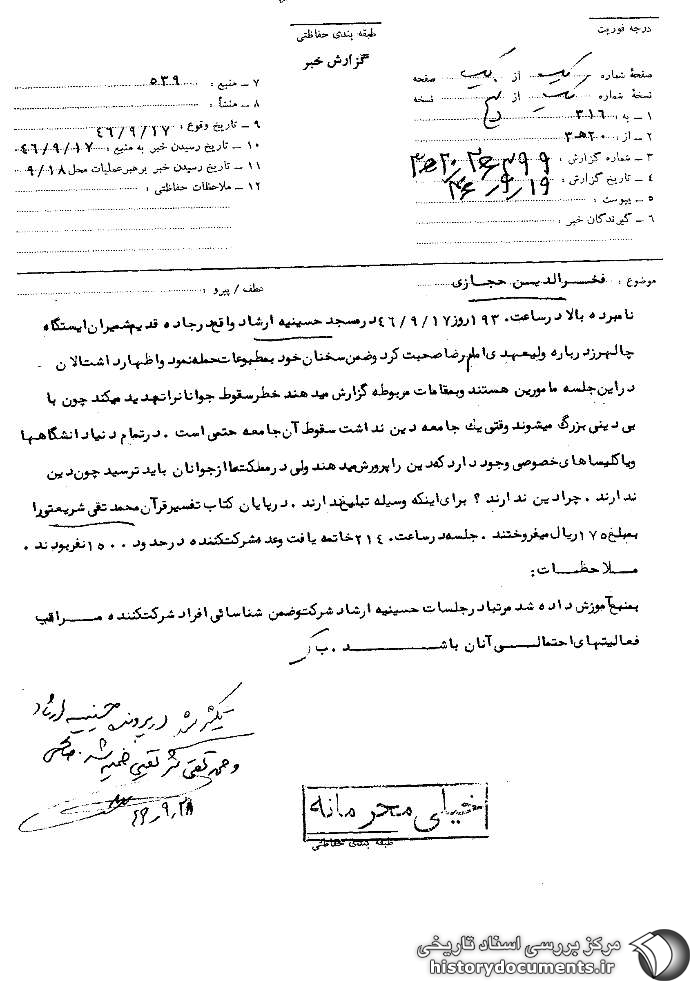 درجه فوریت
طبقه بندی حفاظتی
گزارش خبر
صفحهٔ شماره یک از یک صفحه
نسخهٔ شماره یک از نسخه
۱ ـ به : ۳۱۶
۲ ـ از : ۲۰ هـ ۳
۳ ـ شماره گزارش :
۴ ـ تاریخ گزارش : ۴۶/۹/۱۹
۵ ـ پیوست :
۶ ـ گیرندگان خبر :
۷ ـ منبع : ۵۳۹
۸ ـ منشأ :
۹ ـ تاریخ وقوع : ۴۶/۹/۱۷
۱۰ ـ تاریخ رسیدن خبر به منبع : ۴۶/۹/۱۷
۱۱ ـ تاریخ رسیدن خبر برهبر عملیات محل ۹/۱۸
۱۲ ـ ملاحظات حفاظتی :
موضوع : فخرالدین حجازی
عطف / پیرو :
نامبرده بالا در ساعت ۱۹۳۰ روز ۴۶/۹/۱۷ در مسجد حسینیه ارشاد واقع در جاده قدیم شمیران ایستگاه
چالهرز درباره ولیعهدی امام رضا صحبت کرد و ضمن سخنان خود بمطبوعات حمله نمود و اظهار داشت الان
در این جلسه مامورین هستند و بمقامات مربوطه گزارش میدهند خطر سقوط جوانان را تهدید میکند چون با
بی دینی بزرگ میشوند وقتی یك جامعه دین نداشت سقوط آن جامعه حتمی است . در تمام دنیا دانشگاهها
و یا کلیساهای خصوصی وجود دارد که دین را پرورش میدهند ولی در مملکت ما از جوانان باید ترسید چون دین
ندارند . چرا دین ندارند ؟ برای اینکه وسیله تبلیغ ندارند . در پایان کتاب تفسیر قرآن محمد تقی شریعتی را
بمبلغ ۱۷۵ ریال میفروختند . جلسه در ساعت ۲۱۴۰ خاتمه یافت و عده شرکت کننده در حدود ۱۵۰۰ نفر بودند .
ملاحظات :
بمنبع آموزش داده شد مرتبا در جلسات حسینیه ارشاد شرکت و ضمن شناسائی افراد شرکت کننده مراقب
فعالیتهای احتمالی آنان باشد .
در پرونده حسینیه ارشاد
و محمد تقی
۴۶/۹/۲۸
خیلی محرمانه
طبقه بندی حفاظتی
مرکز بررسی اسناد تاریخی
historydocuments.ir